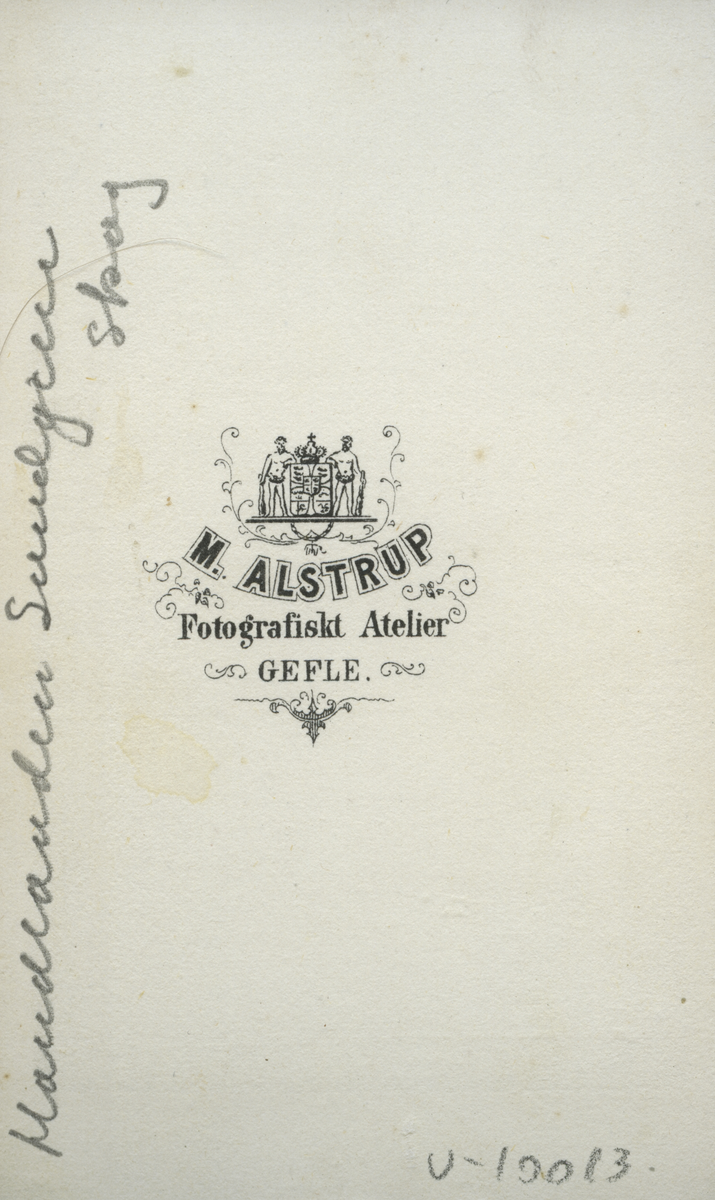 Handlanden Lundgren
Skog
M. ALSTRUP
Fotografiskt Atelier
GEFLE.
U-10013.